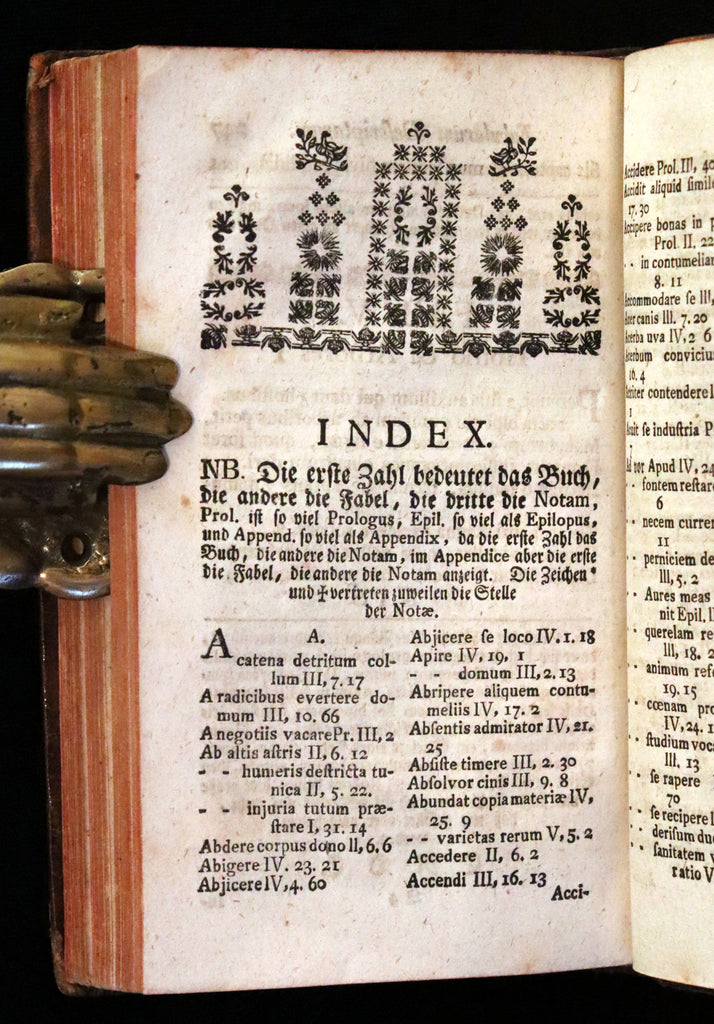 INDEX.
NB. Die erſte Zahl bedeutet das Buch,
die andere die Fabel, die dritte die Notam,
Prol. iſt ſo viel Prologus, Epil. ſo viel als Epilopus,
und Append. ſo viel als Appendix, da die erſte Zahl das
Buch, die andere die Notam, im Appendice aber die erſte
die Fabel, die andere die Notam anzeigt. Die Zeichen *
und ‡ vertreten zuweilen die Stelle
der Notæ.
A.
A catena detritum col-
lum III, 7. 17
A radicibus evertere do-
mum III, 10. 66
A negotiis vacare Pr. III, 2
Ab altis aſtris II, 6. 12
- - humeris deſtricta tu-
nica II, 5. 22.
- - injuria tutum præ-
ſtare I, 31. 14
Abdere corpus dono II, 6. 6
Abigere IV. 23. 21
Abjicere IV, 4. 60
Abjicere ſe loco IV. 1. 18
Apire IV, 19, 1
- - domum III, 2. 13
Abripere aliquem contu-
meliis IV, 17. 2
Abſentis admirator IV, 21.
25
Abſiſte timere III, 2. 30
Abſolvor cinis III, 9. 8
Abundat copia materiæ IV,
25. 9
- - varietas rerum V, 5. 2
Accedere II, 6. 2
Accendi III, 16. 13
Acci-
Accidere Prol. III, 40
Accidit aliquid ſimile
17. 30
Accipere bonas in
Prol. II. 22
- - in contumeliam
8. 11
Accommodare ſe III,
Acer canis III. 7. 20
Acerba uva IV, 2 6
Acerbum convicium
16. 4
Acriter contendere I
1
Acuit ſe induſtria P
Ad vor Apud IV, 24
- - fontem reſtare
6
- - necem curren
11
- - perniciem de
III, 5. 2
- - Aures meas
nit Epil. II
- - querelam re
III, 18. 2
- - animum ref
19. 15
- - cœnam pro
IV, 24. 1
- - ſtudium voca
III. 13
- - ſe rapere
70
- - ſe recipere I
- - deriſum du
- - ſanitatem v
ratio V